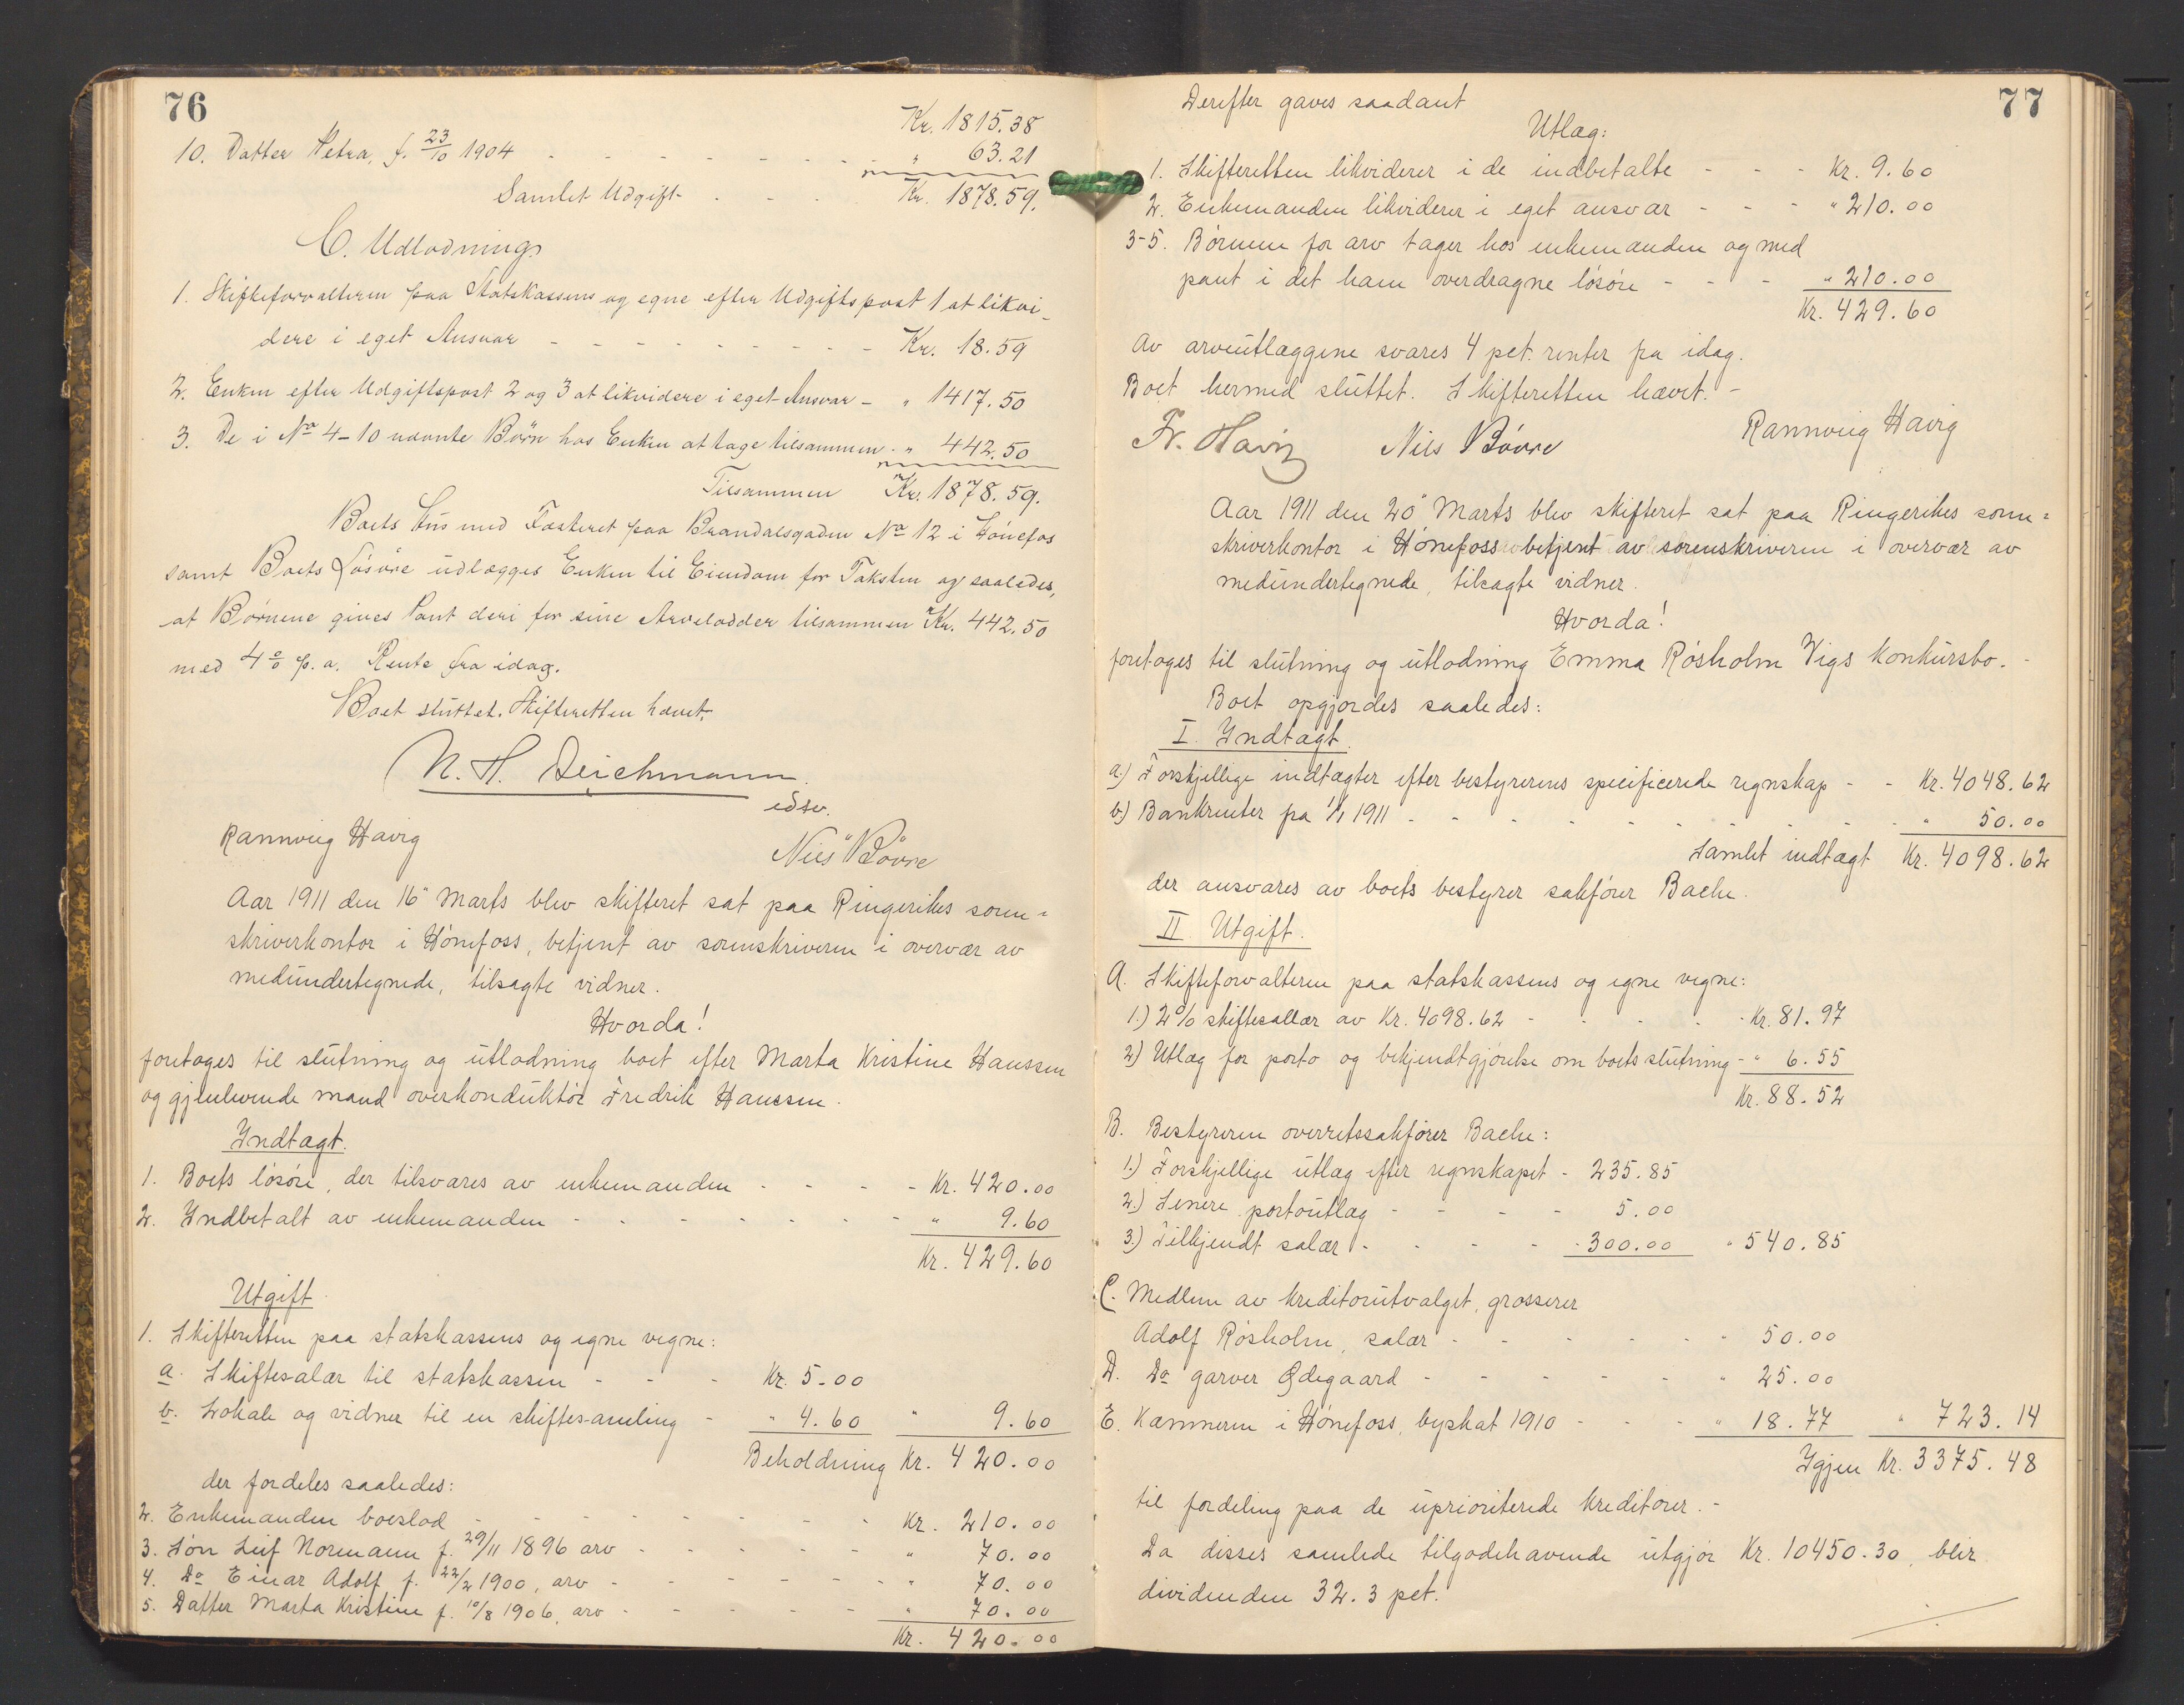 76
Kr. 1815.38
10. Datter Petra, f. 23/10 1904 - - - - - - - - " 63.21
Samlet Udgift - - - Kr. 1878.59.
C. Udlodning
1. Skifteforvalteren paa Statskassens og egne efter Udgiftspost 1 at likvi-
dere i eget Ansvar - - - - - - - - - Kr. 18.59
2. Enken efter Udgiftspost 2 og 3 at likvidere i eget Ansvar - " 1417.50
3. De i No 4-10 nævnte Børn hos Enken at tage tilsammen - " 442.50
Tilsammen Kr. 1878.59.
Boets Hus med Fæsteret paa Brandalsgaden No 12 i Hönefos
samt Boets Løsøre udlægges Enken til Eiendom for Taksten og saaledes,
at Børnene gives Pant deri for sine Arvelodder tilsammen Kr. 442.50
med 4 % p. a. Rente fra idag.
Boet sluttet. Skifteretten hævet.
N. H. Deichmann.
edsv.
Rannveig Havig
Nils Bövre
Aar 1911 den 16" Marts blev skifteret sat paa Ringerikes soren=
skriverkontor i Hönefoss, betjent av sorenskriveren i overvær av
medundertegnede, tilsagte vidner.
Hvorda!
foretoges til slutning og utlodning boet efter Marta Kristine Hanssen
og gjenlevende mand overkonduktör Fredrik Hanssen.
Indtægt.
1. Boets lösöre, der tilsvares av enkemanden - - - - Kr. 420.00
2. Indbetalt av enkemanden - - - - - - - " 9.60
Kr. 429.60
Utgift.
1. Skifteretten paa statskassens og egne vegne:
a. Skiftesalær til statskassen - - - Kr. 5.00
b. Lokale og vidner til en skiftesamling - " 4.60 " 9.60
Beholdning Kr. 420.00
der fordeles saaledes:
2. Enkemanden boeslod - - - - - - - - Kr. 210.00
3. Sön Leif Normann f. 29/11 1896 arv - - - - - " 70.00
4. Do Einar Adolf f. 22/2 1900, arv - - - - - - " 70.00
5. Datter Marta Kristine f. 10/8 1906, arv - - - - - " 70.00
Kr. 420.00
77
Derefter gaves saadant
Utlæg:
1. Skifteretten likviderer i de indbetalte - - - Kr. 9.60
2. Enkemanden likviderer i eget ansvar - - - " 210.00
3-5. Börnene for arv tager hos enkemanden og med
pant i det ham overdragne lösöre - - - " 210.00
Kr. 429.60
Av arveutlæggene svares 4 pct. renter fra idag.
Boet hermed sluttet. Skifteretten hævet. -
Fr. Havig Nils Bövre Rannveig Havig
Aar 1911 den 20" Marts blev skifteret sat paa Ringerikes soren=
skriverkontor i Hönefoss betjent av sorenskriveren i overvær av
medundertegnede, tilsagte vidner.
Hvorda!
foretoges til slutning og utlodning Emma Rösholm Vigs konkursbo. -
Boet opgjordes saaledes:
I. Indtægt.
a.) Forskjellige indtægter efter bestyrerens specificerede regnskap - - Kr. 4048.62
b.) Bankrenter fra 1/1 1911 - - - - - - - - - " 50.00
Samlet indtægt Kr. 4098.62
der ansvares av boets bestyrer sakförer Bache.
II. Utgift.
A. Skifteforvalteren paa statskassens og egne vegne:
1.) 2% skiftesalær av Kr. 4098.62 - - - - - Kr. 81.97
2.) Utlæg for porto og bekjendtgjörelse om boets slutning - " 6.55
Kr. 88.52
B. Bestyreren overretssakförer Bache:
1.) Forskjellige utlæg efter regnskapet - 235.85
2.) Senere portoutlæg - - - - 5.00
3.) Tilkjendt salær - - - - - 300.00 " 540.85
C. Medlem av kreditorutvalget, grosserer
Adolf Rösholm, salær - - - - - - " 50.00
D. Do garver Ødegaard - - - - - - " 25.00
E. Kæmneren i Hönefoss, byskat 1910 - - - " 18.77 " 723.14
Igjen Kr. 3375.48
til fordeling paa de uprioriterede kreditorer. -
Da disses samlede tilgodehavende utgjör Kr. 10450.30, blir
dividenden 32.3 pct.